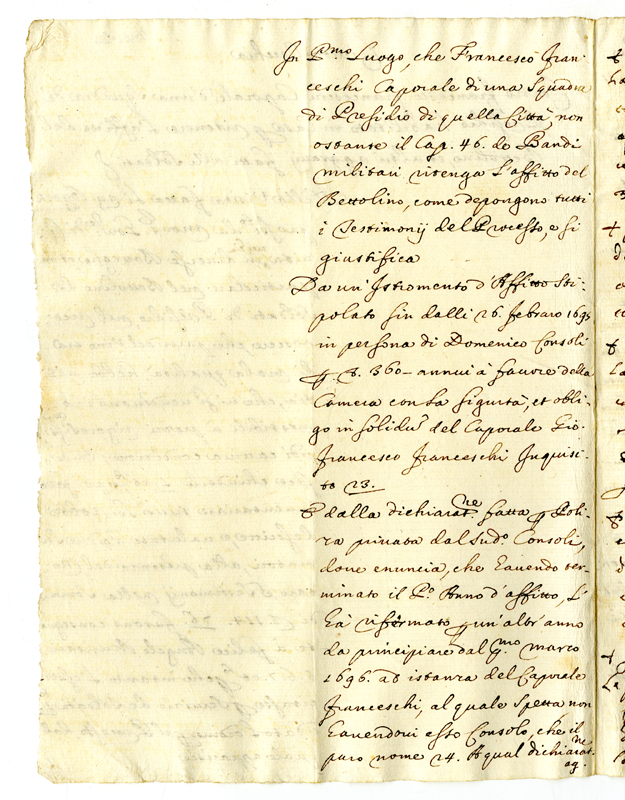 In P.mo Luogo, che Francesco Fran-
ceschi Caporale di una Squadra
di Presidio di quella Città, non
ostante il Cap. 46. de Bandi
militari ritenga l'affitto del
Bettolino, come depongono tutti
i Testimonij del Processo, e si
giustifica
Da un' Istromento d'Affitto Sti-
polato sin dalli 26. febraro 1695
in persona di Domenico Consoli
360 annui à favore della
Camera con la sigurtà, et obli-
go in solidu del Caporale Gio.
Francesco Franceschi Inquisi-
to 23.
E dalla dichiarat.ne fatta Poli-
za privata dal Sud.o Consoli,
dove enuncia, che havendo ter-
minato il P.o Anno d'affitto, l'
hà rifermato un' altr' anno
da principiare dal p.mo marzo
1696. ad istanza del Caporale
Franceschi, al quale spetta, non
havendovi esso Consolo, che il
puro nome 24. A qual dichiarat.ne
ag.